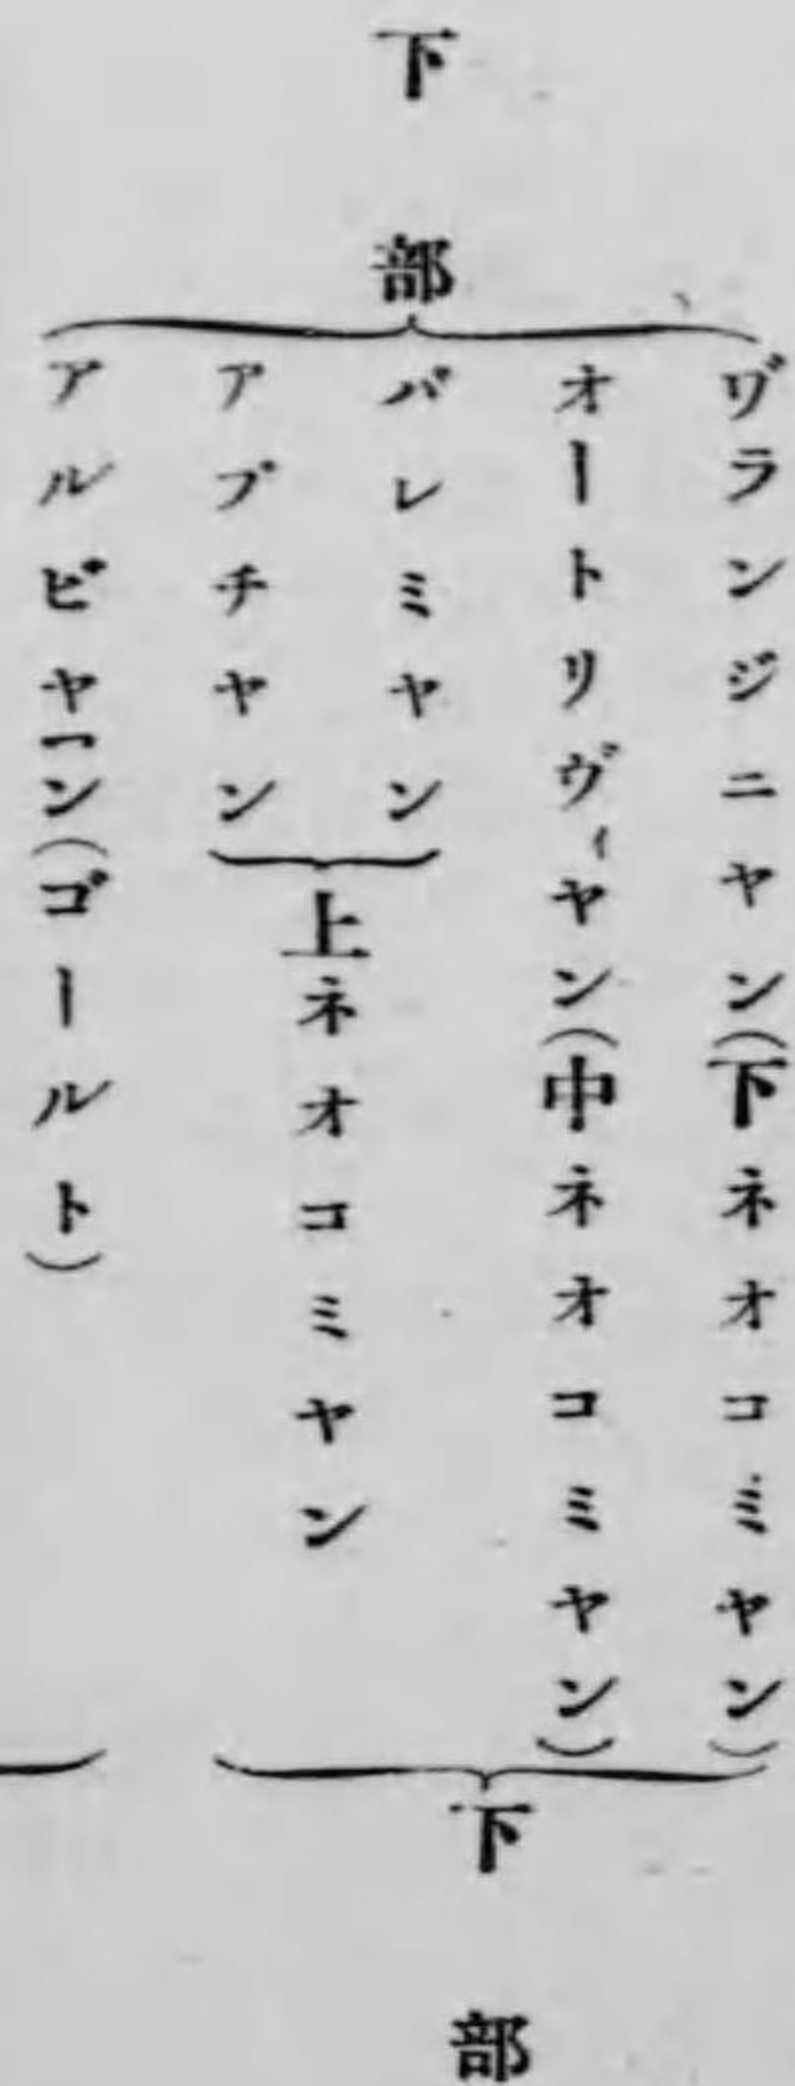 下部
ヷランジニヤン(下ネオコミヤン)
オートリヴィヤン(中ネオコミヤン)
バレミヤン
アプチヤン
上ネオコミヤン
アルビヤーン(ゴールト)
下部